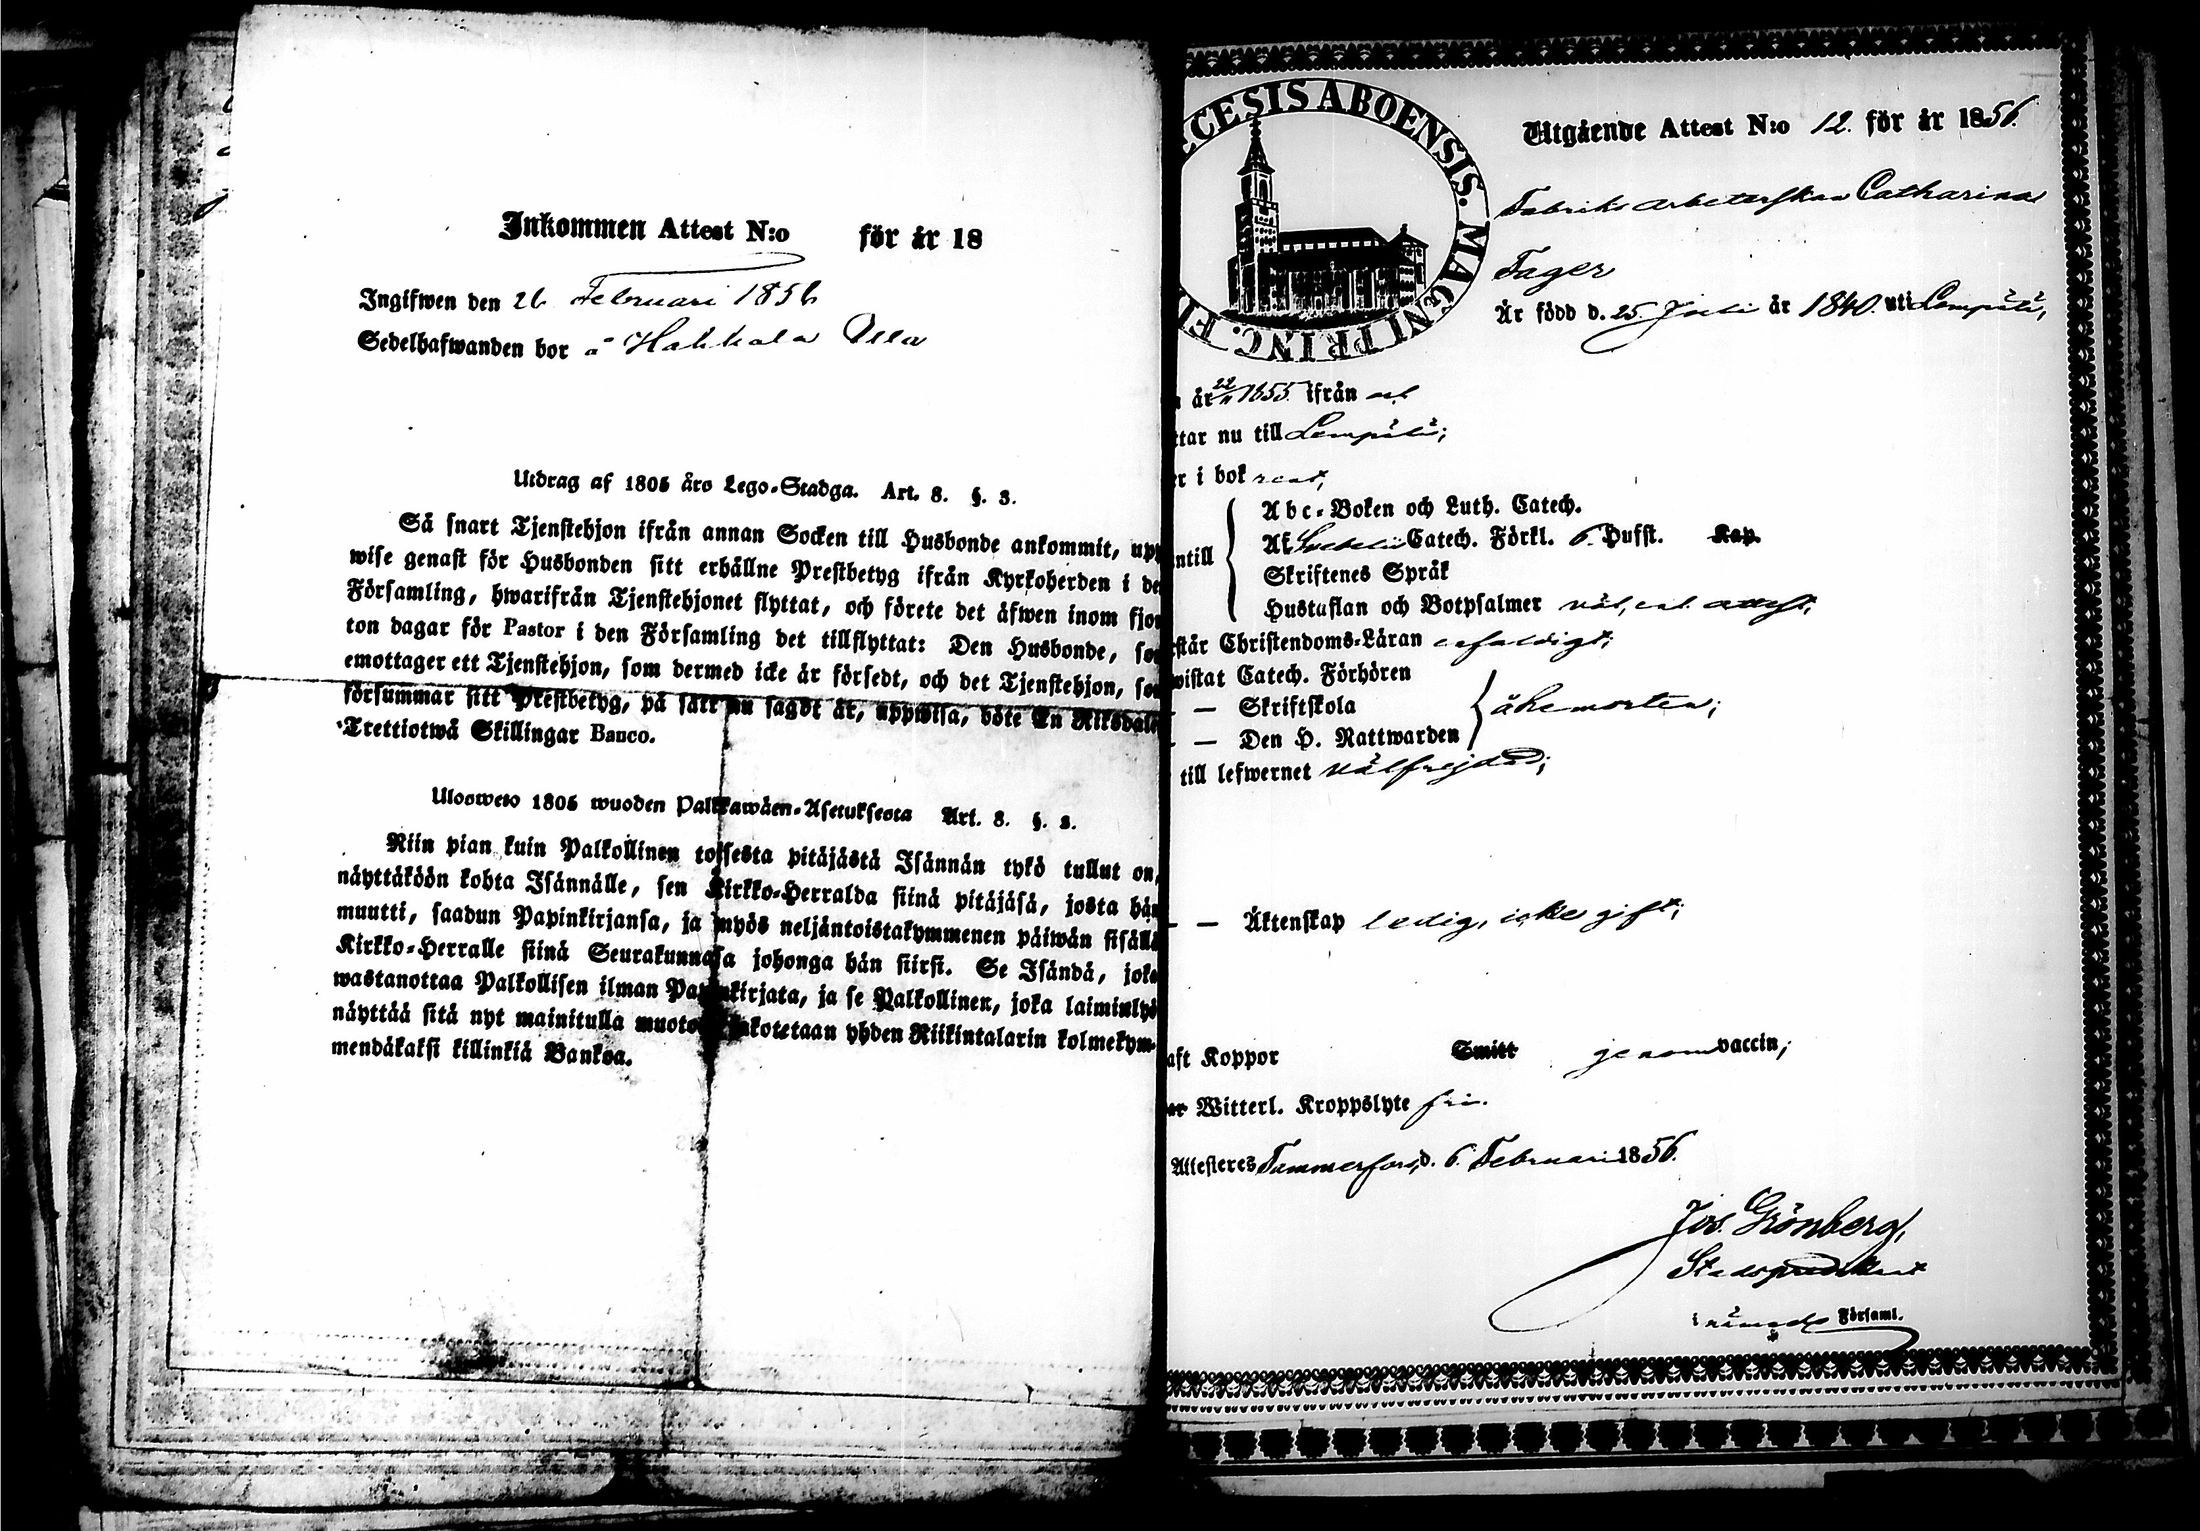 Inkommen Attest N:o för år 18
Ingifwen den 26 Februari 1856
Sedelhafwanden bor å Hakkala
Utdrag af 1805 års Lego-Stadga. Art. 8. §. 3.
Så snart Tjenstehjon ifrån annan Socken till Husbonde ankommit, upp
wise genast för Husbonden sitt erhållne Prestbetyg ifrån Kyrkoherden i de
Församling, hwarifrån Tjenstehjonet flyttat, och förete det äfwen inom fjor
ton dagar för Pastor i den Församling det tillflyttat: Den Husbonde, so
emottager ett Tjenstehjon, som dermed icke är försedt, och det Tjenstehjon, so
försummar sitt Prestbetyg, på sätt nu sagdt är, uppwisa, böte En Riksdale
Trettiotwå Skillingar Banco.
Ulosweto 1805 wuoden Palkkawäen-Asetuksesta Art. 8. §. 3.
Niin pian kuin Palkollinen toisesta pitäjästä Isännän tykö tullut on,
näyttäköön kohta Isännälle, sen Kirkko-Herralda siinä pitäjäsä, josta hän
muutti, saadun Papinkirjansa, ja myös neljäntoistakymmenen päiwän sisällä
Kirkko-Herralle siinä Seurakunnasa johonga hän siirsi. Se Isändä, joka
wastanottaa Palkollisen ilman Papinkirjata, ja se Palkollinen, joka laiminlyö
näyttää sitä nyt mainitulla muoto sakotetaan yhden Riikintalarin kolmekym-
mendäkaksi killinkiä Bankoa.
CESIS ABOENSIS. MAGNI PRINC. FI
Utgående Attest N:o 12. för år 1856.
Fabriks arbeterskan Catharina
Fager
Är född d. 25 Juli år 1840. uti Lempälä,
år 22/11 1855 ifrån
ttar nu till Lempälä;
er i bok rent,
Abc-Boken och Luth. Catech.
Af Svebelii Catech. Förkl. 6. Hufst. Kap.
ntill
Skriftenes Språk
Hustaflan och Botpsalmer
rstår Christendoms-Läran enfaldigt;
wistat Catech. Förhören
— — Skriftskola
— — Den H. Nattwarden
till lefwernet välfrejdad;
— — Äktenskap ledig, icke gift;
aft Koppor Smitt genom vaccin;
ar Witterl. Kroppslyte fri.
Attesteres Tammerfors, d. 6. Februari 1856.
Jos. Grönberg,
Stadspredikant
i Församl.